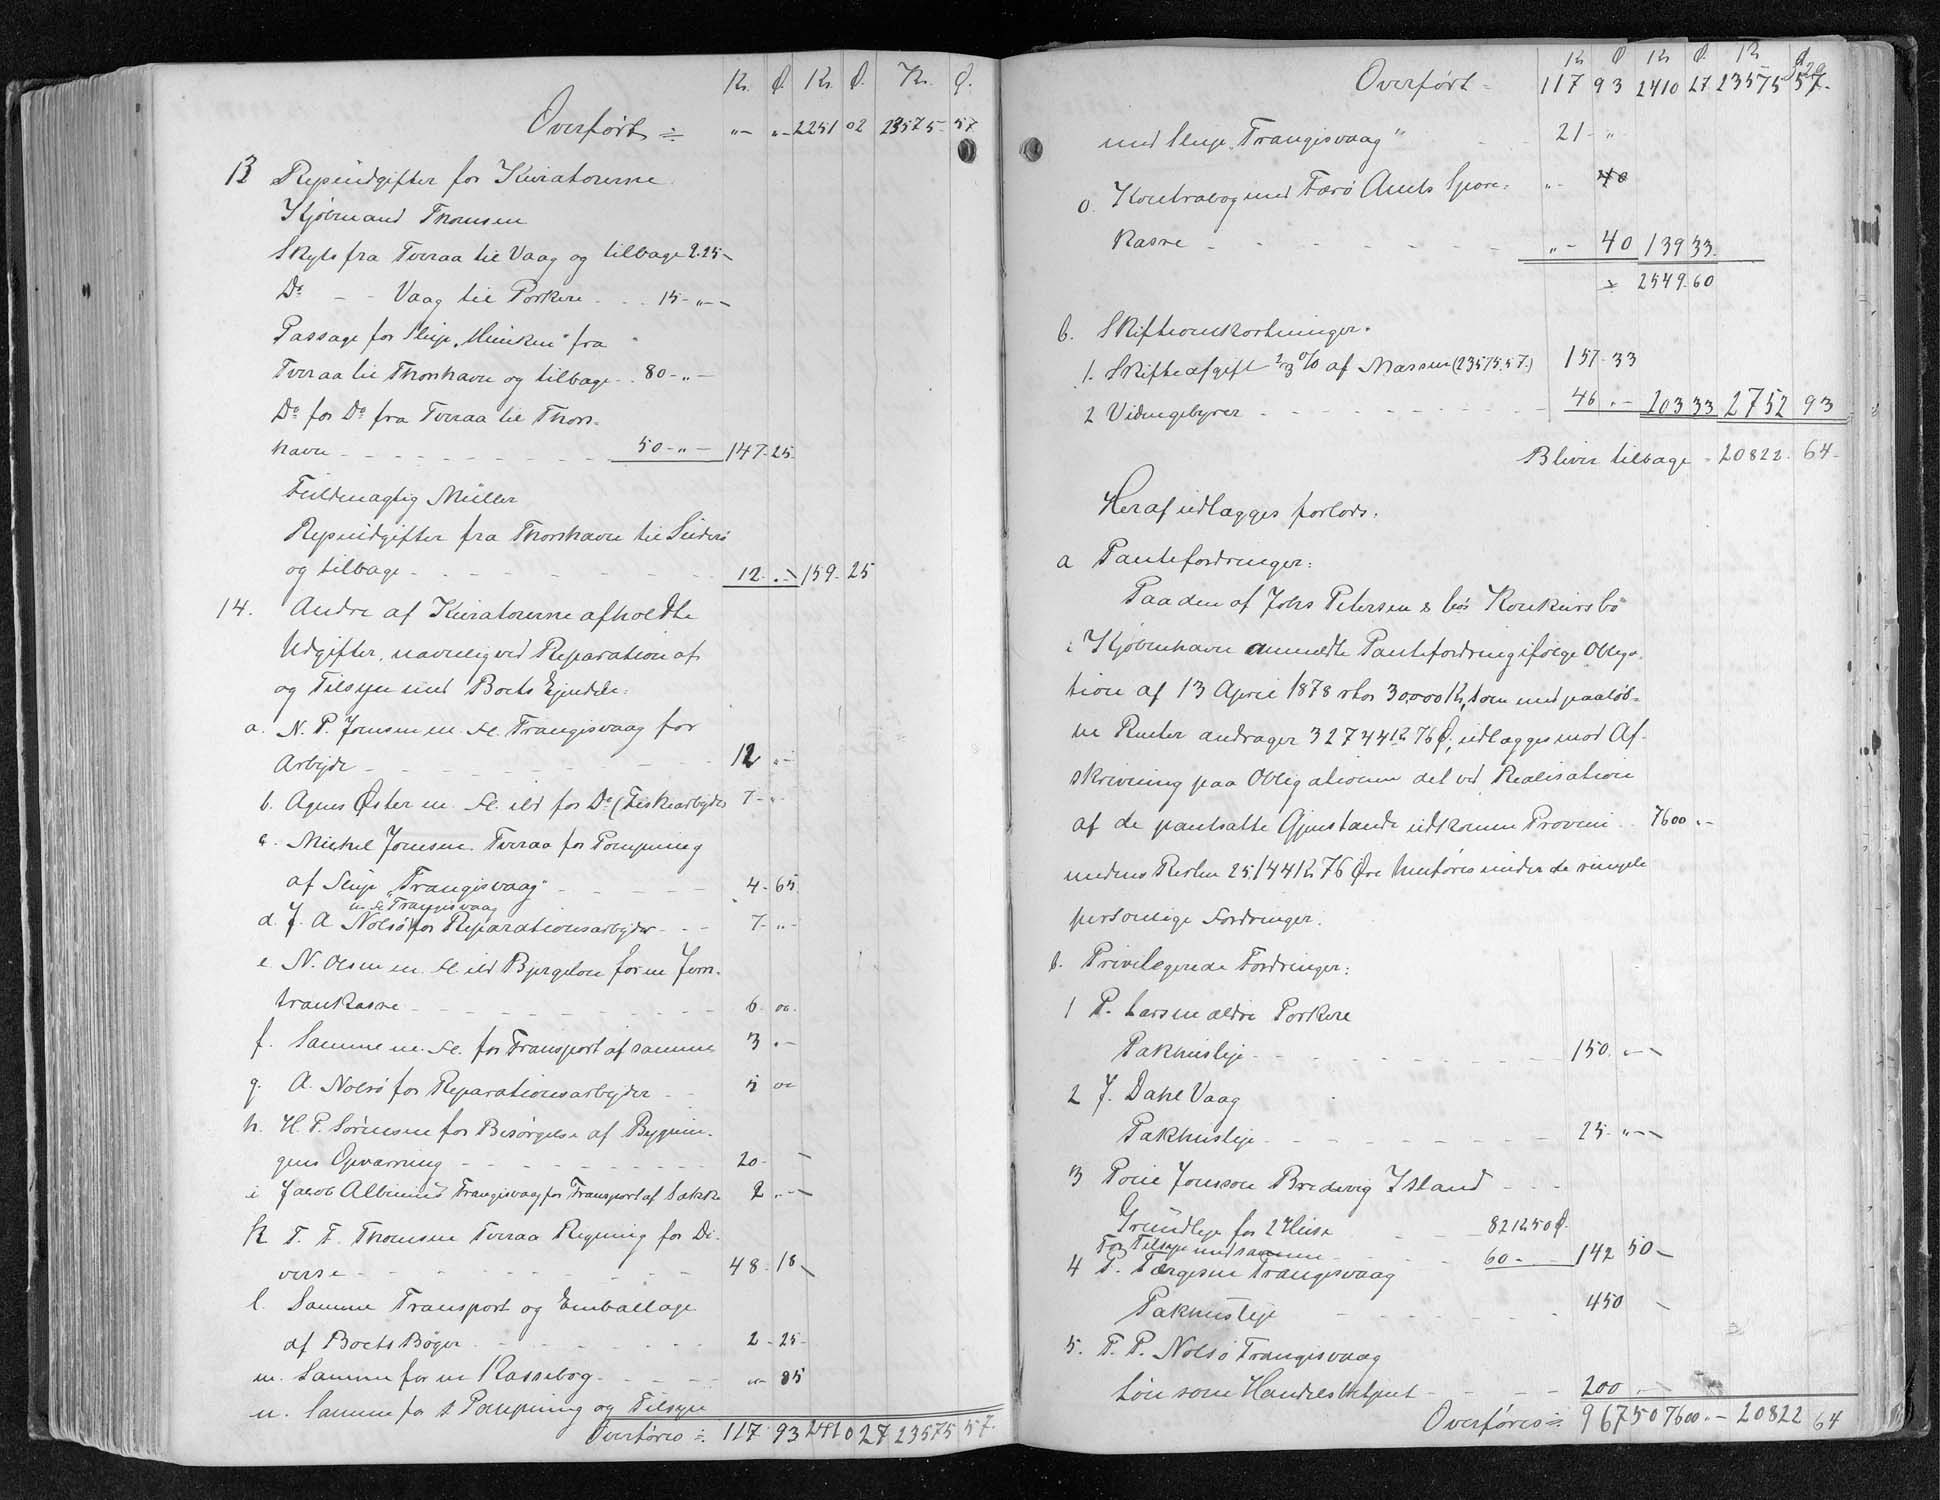 Kr. Ø. Kr. Ø. Kr. Ø.
Overført = „- „- 2251 02 23575 57
13 Rejseudgifter for Kuratorerne
Kjøbmand Thomsen
Skyds fra Tveraa til Vaag og tilbage 2.25-
Do - - Vaag til Porkere - - 15-„-
Passage for Slup „Minken" fra
Tveraa til Thorshavn og tilbage - 80-„-
Do for Do fra Tveraa til Thors-
havn - - - 50-„- 147.25-
Fuldmægtig Müller
Rejseudgifter fra Thorshavn til Suderø
og tilbage - - - 12.- 159.25
14. Andre af Kuratorerne afholdte
Udgifter, navnlig ved Reparation af
og Tilsyn med Boets Ejendele:
a. N. P. Joensen m. fl. Trangisvaag for
Arbejde - - - 12 „-
b. Agnes Øster m. fl. ibd for Do (Fiskearbejde) 7-„-
c. Michel Joensen Tveraa for Pompning
af Slup „Trangisvaag" - - - 4-65
m. fl. Trangisvaag
d. J. A Nolsø for Reparationsarbejder - - 7-„-
e N. Olsen m. fl. ibd Bjergelon for en Jern-
trankasse - - - 6-00.
f. Samme m. fl. for Transport af samme 3.-
g. A. Nolsø for Reparationsarbejder - - 5 00
h. H. P. Sørensen for Besørgelse af Bygnin-
gens Opvarming - - - 20-
i Jacob Albinus Trangisvaag for Transport af Sække 2.-
k T. F. Thomsen Tveraa Regning for Di-
verse - - - 48-18
l. Samme Transport og Emballage
af Boets Bøger - - - 2-25-
m. Samme for en Kassebog - - - „- 85
n. Samme for Pompning og Tilsyn
Overføres =. 117 93 2410 27 23575 57.
Kr Ø Kr Ø. Kr Ø
Overført - 117 93 2410 27 23575 57.
med Slup „Trangisvaag" - - 21-„
o. Kontrabog med Færø Amts Spare- „- 40
kasse - - - „- 40 139 33.
2549.60
b. Skifteomkostninger.
1. Skifteafgift 2/3 % af Massen (23575.57.) 157-33
2 Vidnegebyrer - - - 46.- 203 33 2752 93
Bliver tilbage - 20822. 64-
Heraf udlægges forlods:
a Pantefordringer:
Paa den af Johs Petersen & Cos Konkursbo
i Kjøbenhavn anmeldte Pantefordring ifølge Obliga-
tion af 13 April 1878 stor 30,000 Kr, som med paaløb-
ne Renter andrager 32744 Kr 76 Ø, udlægges mod Af-
skrivning paa Obligationen det ved Realisation
af de pantsatte Gjenstande udkomne Provenu - 7600.-
medens Resten 25.144 Kr 76 Øre henføres under de simple
personlige Fordringer.
b. Privilegerede Fordringer:
1 P. Larsen ældre Porkere
Pakhusleje - - - 150.-
2 J. Dahl Vaag
Pakhusleje - - - 25-„-
3 Poul Jonsson Bredevig Island - - -
Grundleje for 2 Huse - - 82 Kr 50 Ø.
For Tilsyn med samme - - 60- 142 50-
4 P. Færgesen Trangisvaag
Pakhusleje - - - 450 -
5. P. P. Nolsø Trangisvaag
Løn som Handelsbetjent - - - 200.-
Overføres =. 967 50 7600.- 20822 64